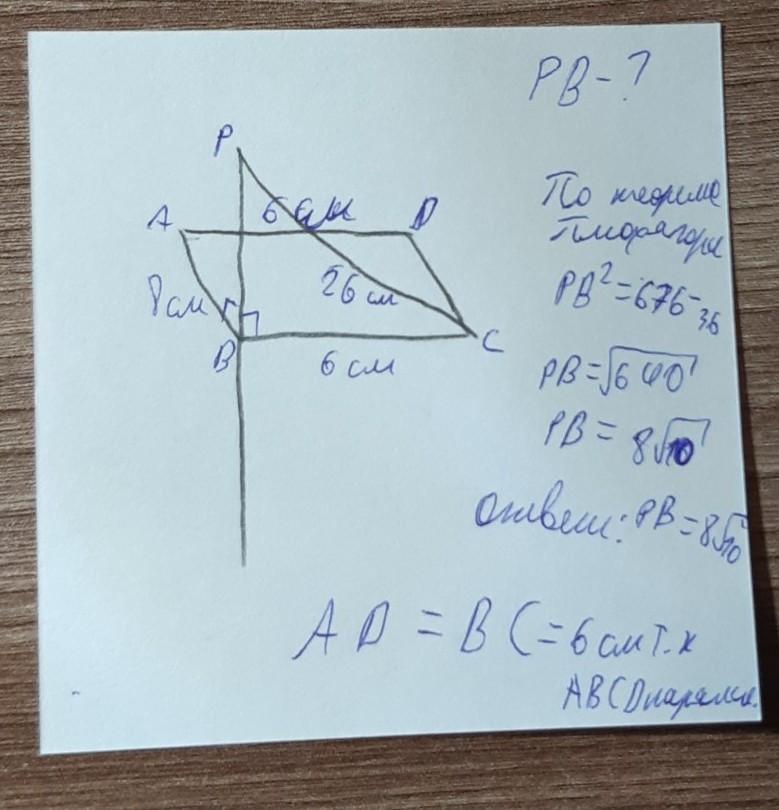 PB-?
P
A
6 см
D
8см
26 см
B
C
6 см
По теореме
Пифагора
PB²=676-36
PB=√640
PB=8√10
Ответ: PB=8√10
AD=BC=6см т.к
ABCD паралл.